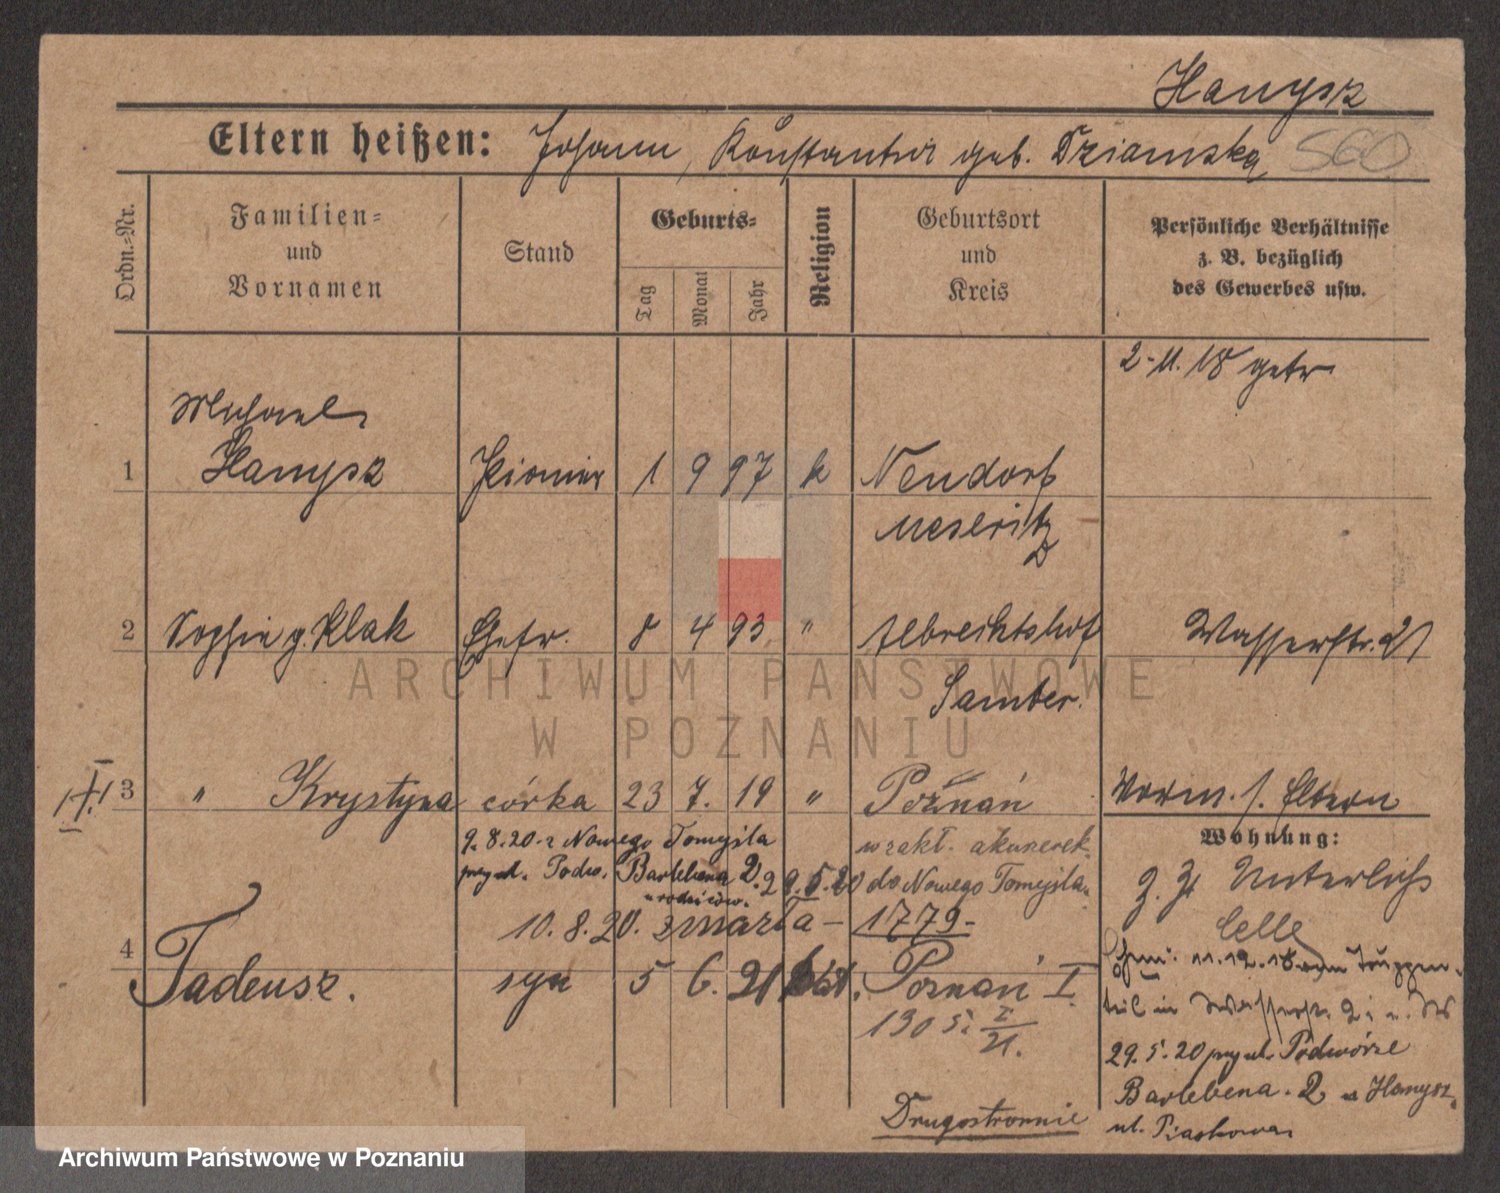 Hanysz
Eltern heißen: Johann, Konstantia geb. Dziamska 560
Ordn.=Nr.
Familien=
und
Vornamen
Stand
Geburts=
Tag
Monat
Jahr
Religion
Geburtsort
und
Kreis
Persönliche Verhältnisse
z. B. bezüglich
des Gewerbes usw.
2-11. 18 getr
Michael
1 Hanysz Pionier 1 9 97 k Neudorf
Meseritz
2 Sophie g. Klak Ehefr. 8 4 93 " Albrechtshof Wasserstr. 21
Samter.
3 " Krystyna córka 23 7. 19 " Poznań Vorm. s. Eltern
9.8.20 z Nowego Tomyśla w zakł. akuszerek
Wohnung:
Podw. Barlebena 2. 29.5.20 do Nowego Tomyśla
u rodziców.
z. Zt. Unterlüß
Celle
10.8.20. zmarła - 1779-
4 Tadeusz. syn 5 6. 21 kat. Poznań I
1305. I/21.
11.12.18 vom Truppen-
teil in Wasserstr.
29.5.20 Podwórze
Barlebena 2 u Hanysz
ul. Piaskowa
Drugostronnie
ARCHIWUM PAŃSTWOWE
W POZNANIU
Archiwum Państwowe w Poznaniu